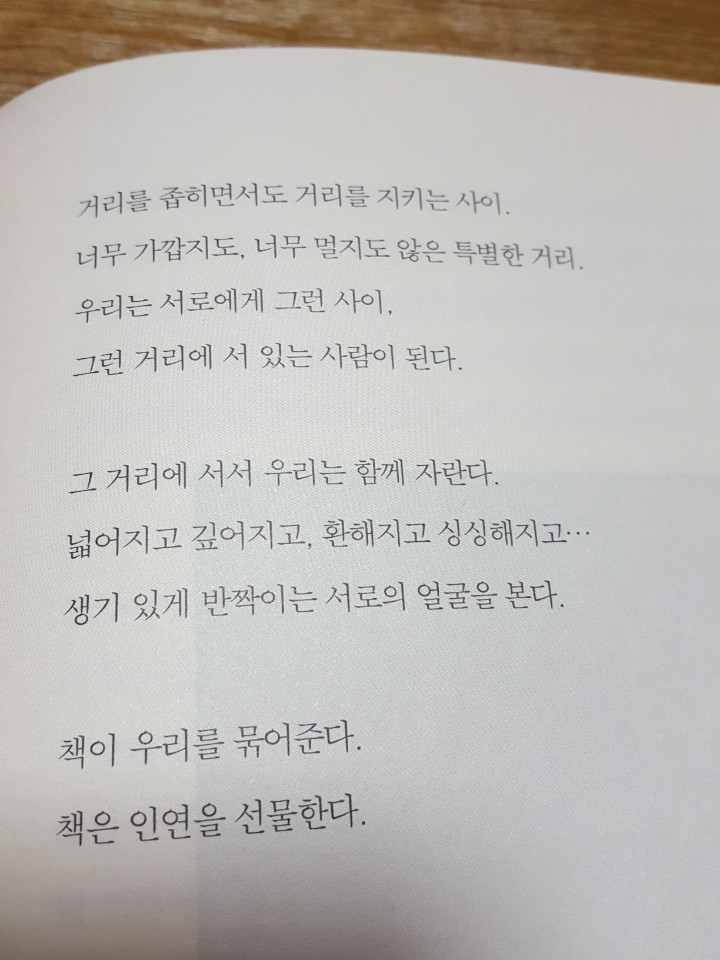 거리를 좁히면서도 거리를 지키는 사이.
너무 가깝지도, 너무 멀지도 않은 특별한 거리.
우리는 서로에게 그런 사이,
그런 거리에 서 있는 사람이 된다.
그 거리에 서서 우리는 함께 자란다.
넓어지고 깊어지고, 환해지고 싱싱해지고…
생기 있게 반짝이는 서로의 얼굴을 본다.
책이 우리를 묶어준다.
책은 인연을 선물한다.